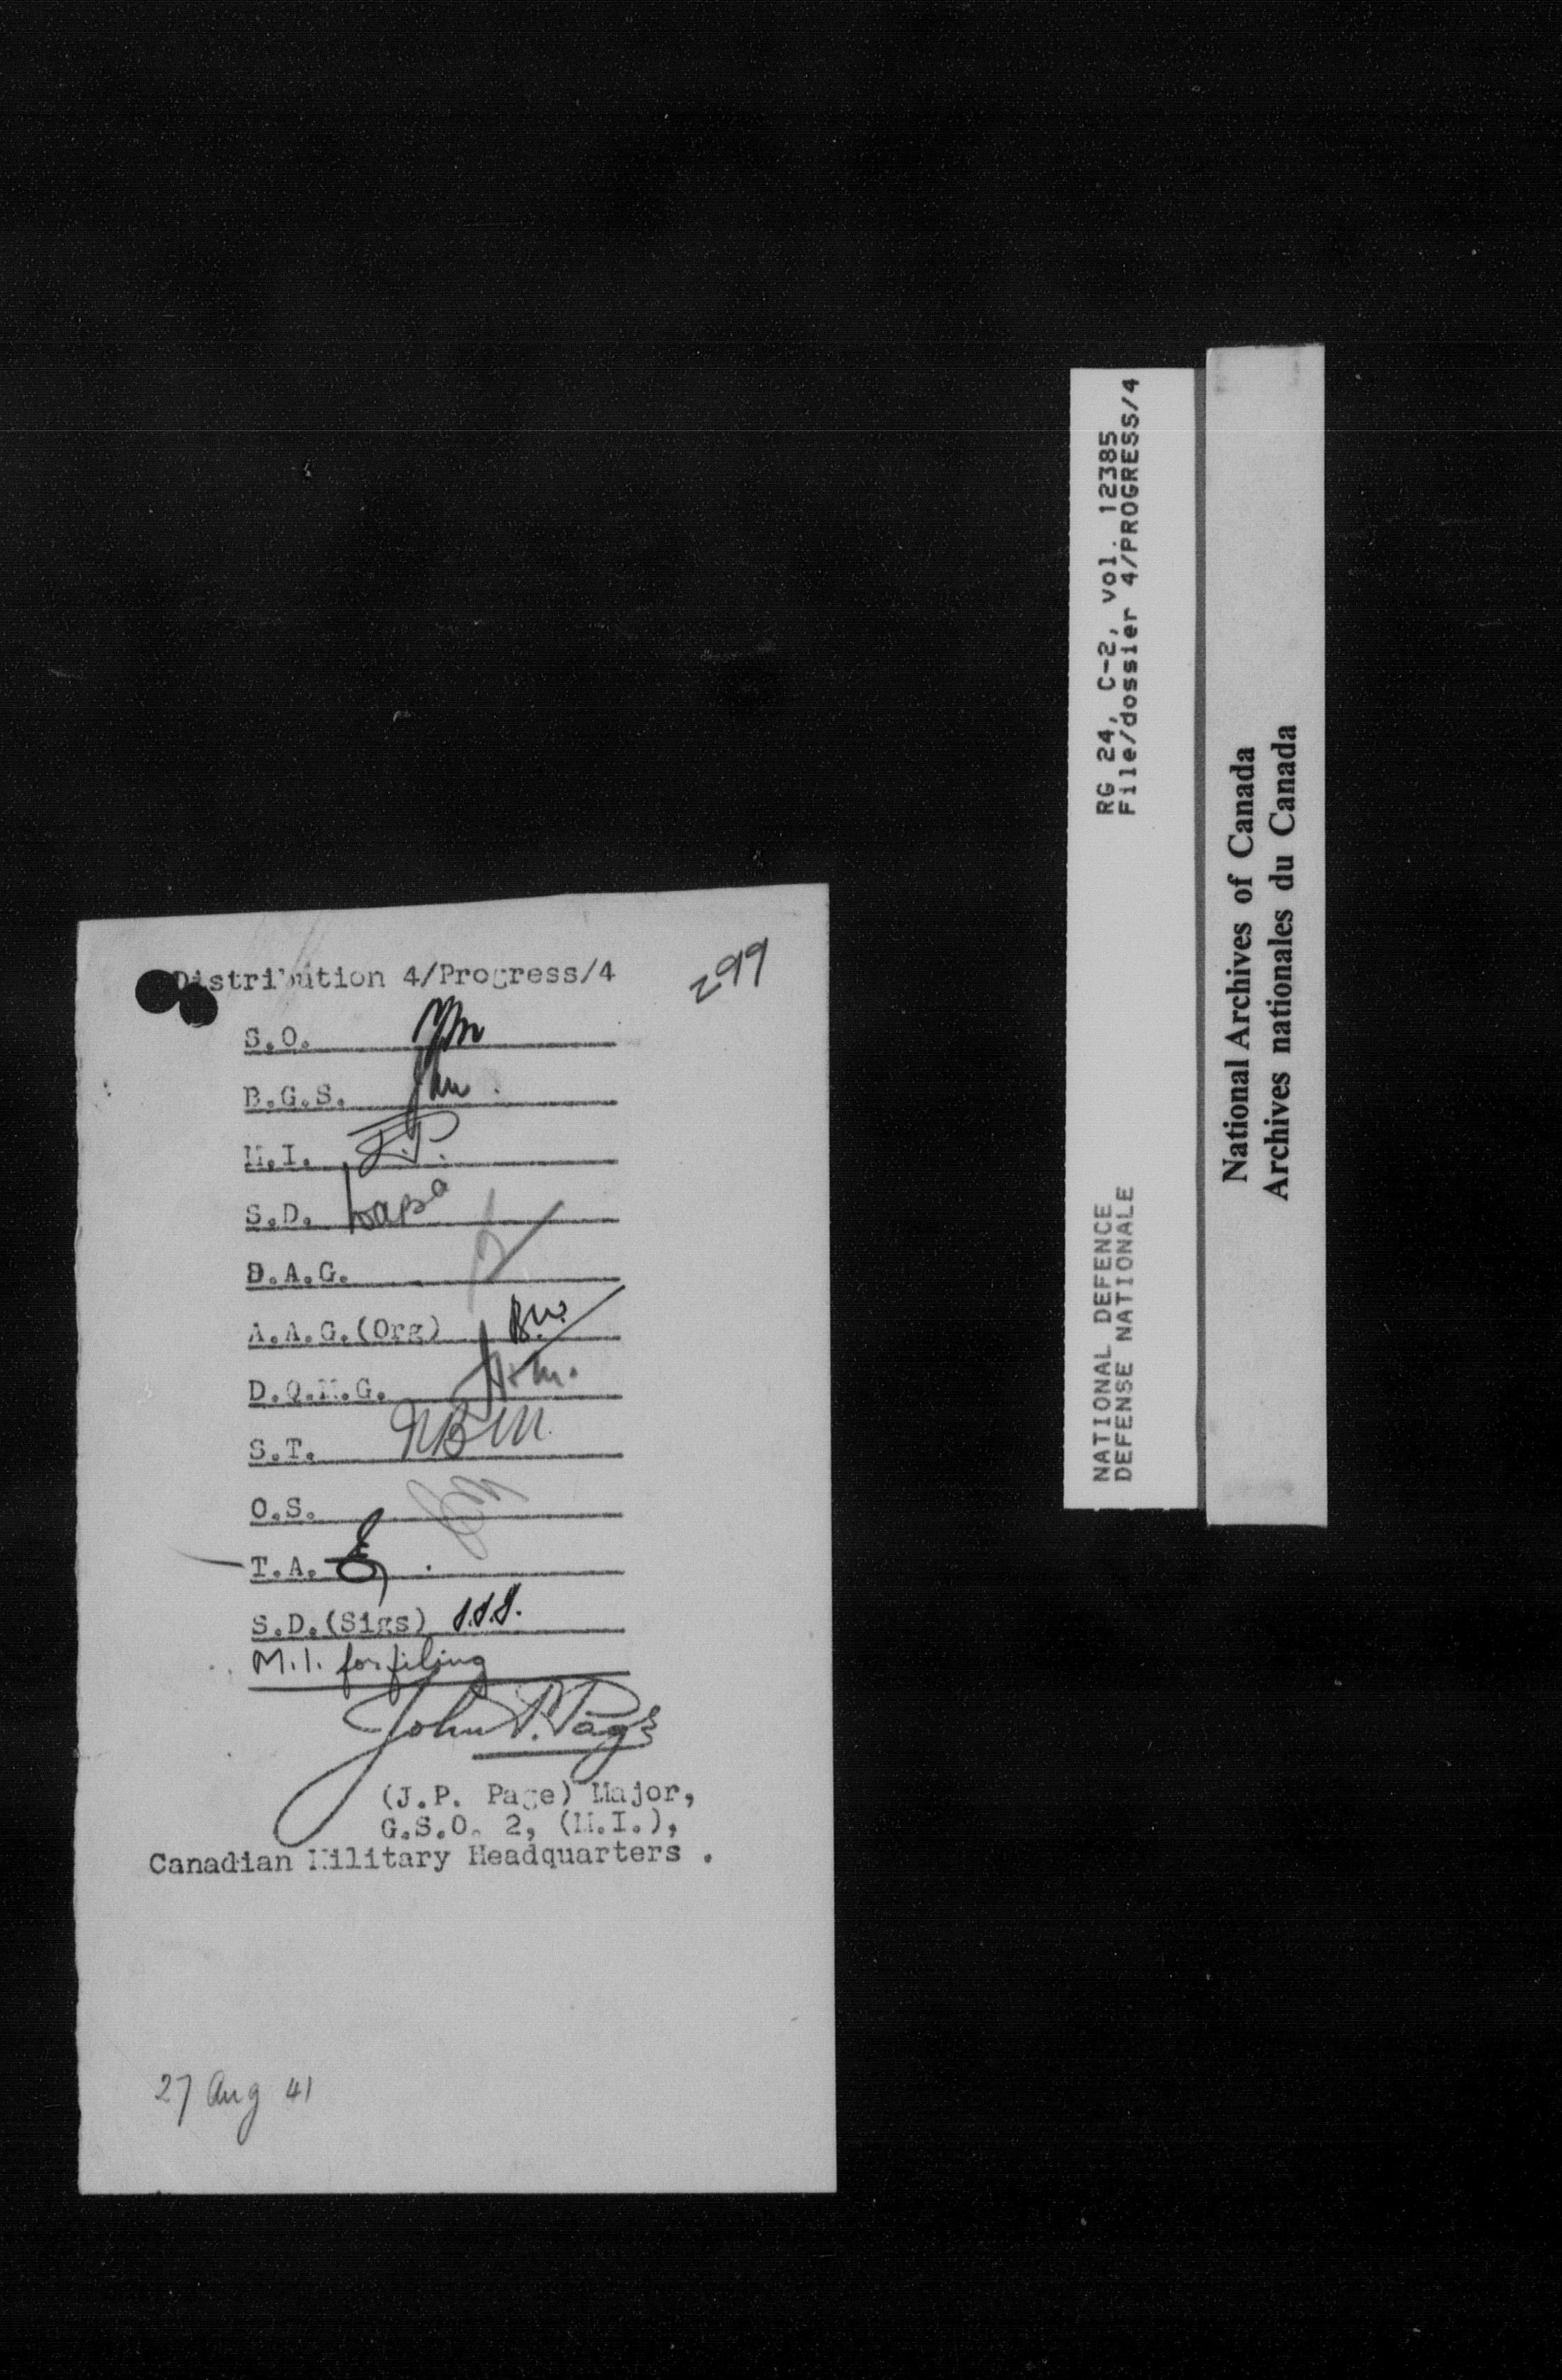 Distribution 4/Progress/4
299
S.O.
B.G.S.
M.I. J.P.
S.D.
D.A.G.
A.A.G.(Org) B.W.
D.Q.M.G.
S.T.
O.S.
T.A.
S.D.(Sigs)
M.I. for filing
John P. Page
(J.P. Page) Major,
G.S.O. 2, (M.I.),
Canadian Military Headquarters .
27 Aug 41
RG 24, C-2, vol. 12385
File/dossier 4/PROGRESS/4
NATIONAL DEFENCE
DEFENSE NATIONALE
National Archives of Canada
Archives nationales du Canada